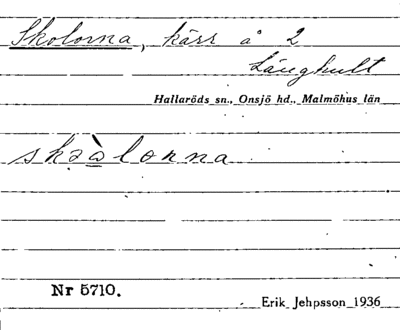 Skolorna, kärr å 2
Långhult
Hallaröds sn., Onsjö hd., Malmöhus län
skə̀ɑ̀lonna
Nr 5710.
Erik Jehpsson 1936